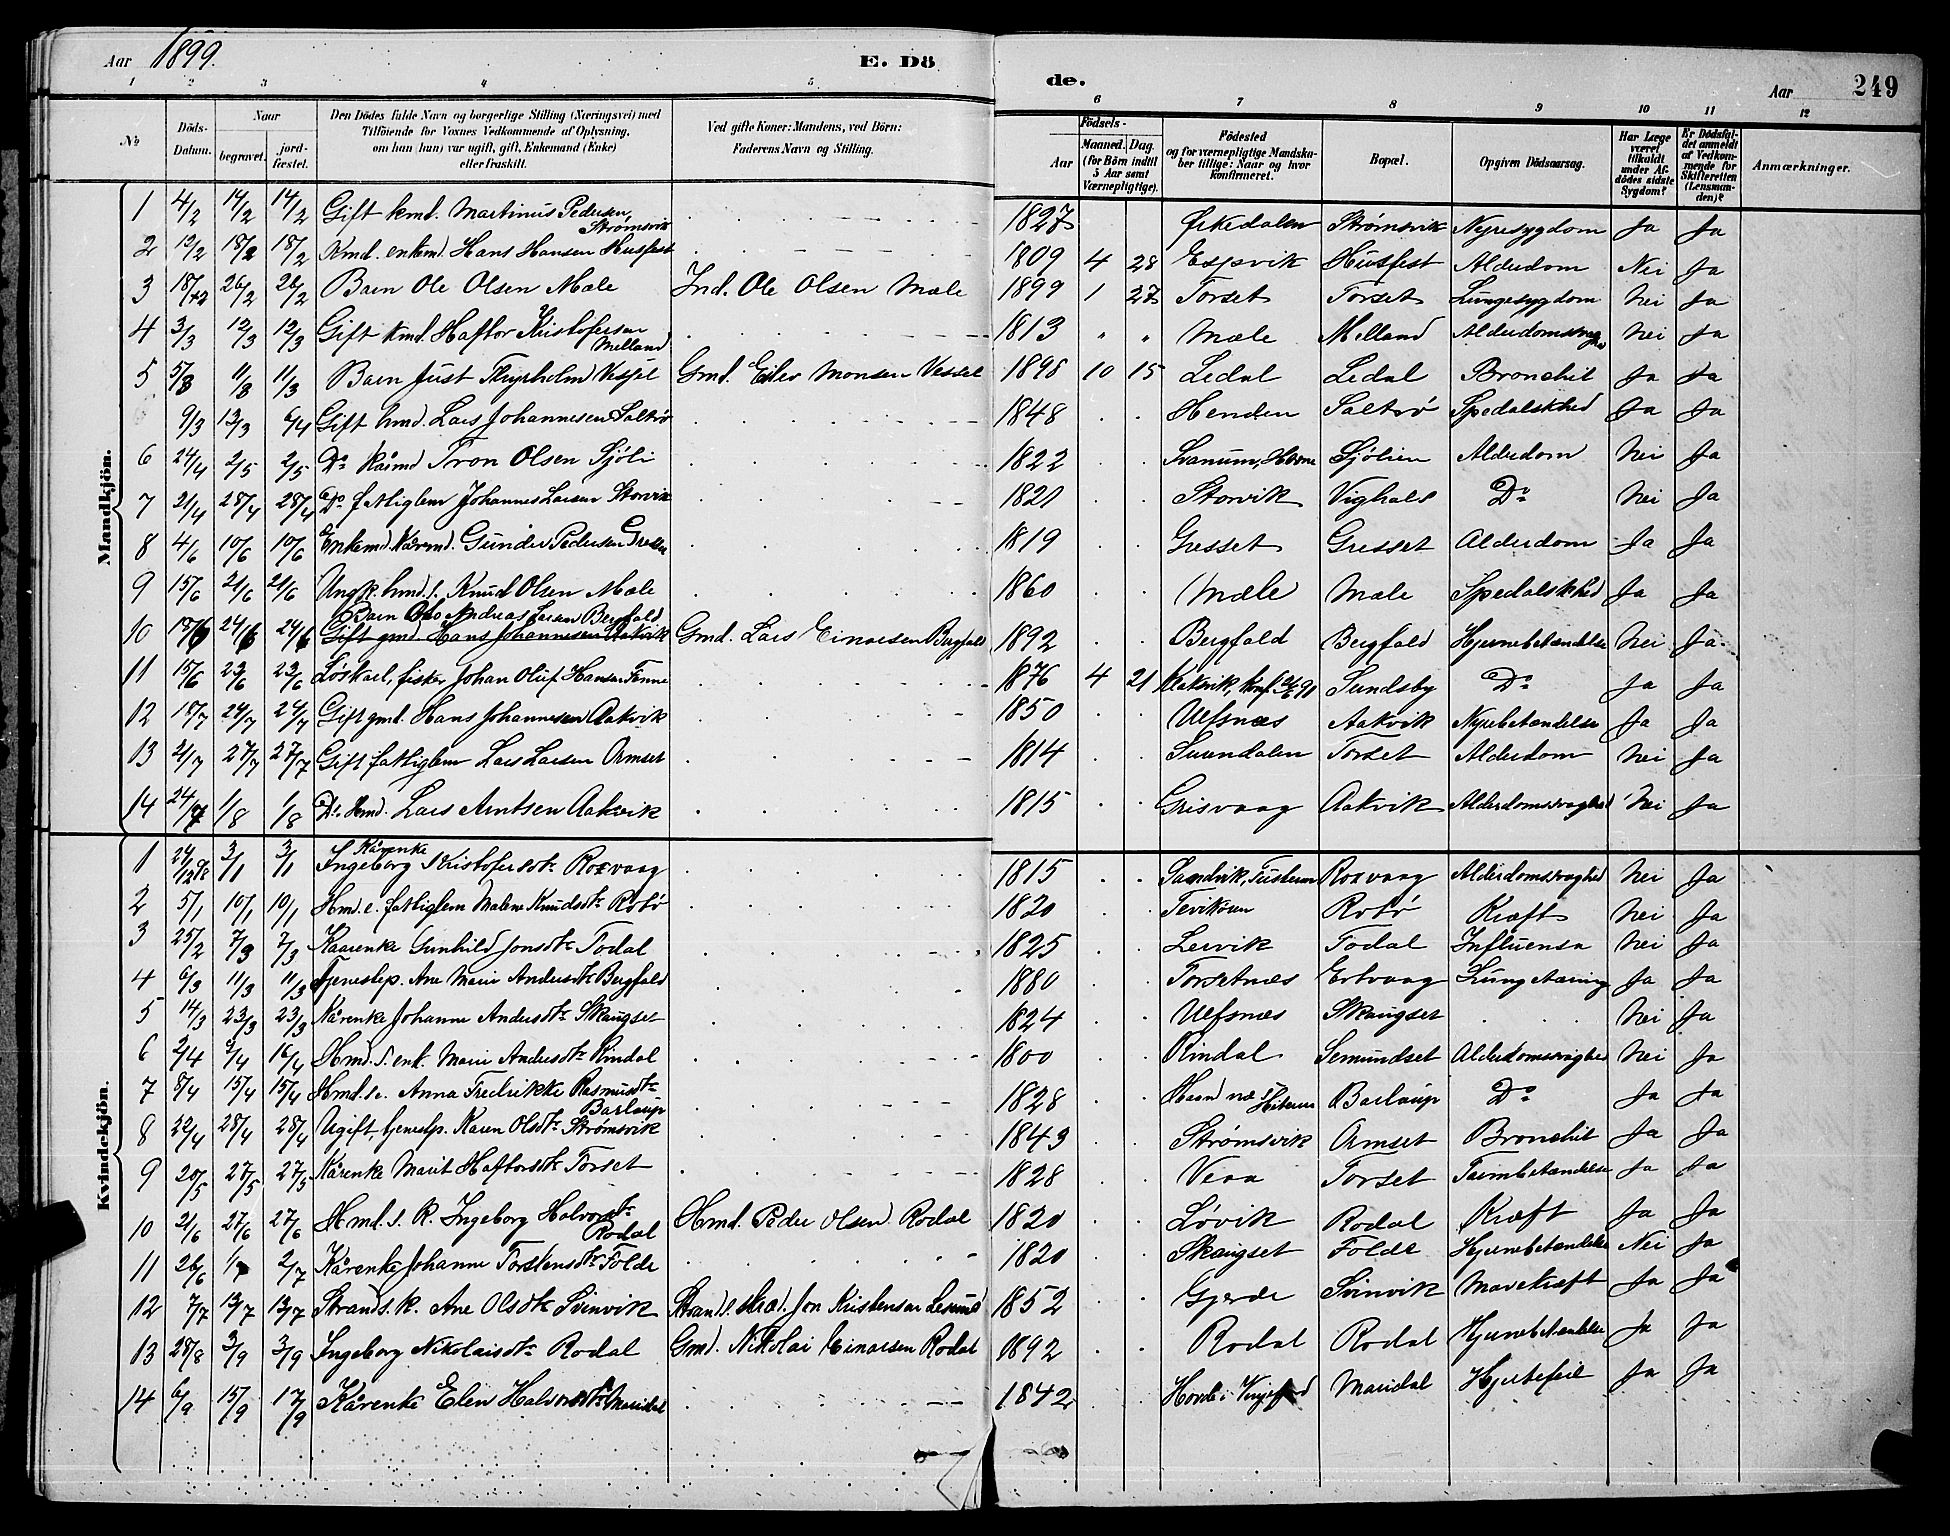 Aar 1899.
E. Dö
de.
Aar
249
1 2 3 4 5 6 7 8 9 10 11 12
No
Döds-Datum.
Naar
begravet.
jordfæstet.
Den Dödes fulde Navn og borgerlige Stilling (Næringsvei) med
Tilföiende for Voxnes Vedkommende af Oplysning,
om han (hun) var ugift, gift, Enkemand (Enke)
eller fraskilt.
Ved gifte Koner: Mandens, ved Börn:
Faderens Navn og Stilling.
Födsels-
Aar
Maaned. Dag.
(for Börn indtil
5 Aar samt
Værnepligtige).
Födested
og for værnepligtige Mandskaber tillige: Naar og hvor
konfirmeret.
Bopæl.
Opgiven Dödsaarsag.
Har Læge
været
tilkaldt
under Afdödes sidste
Sygdom?
Er Dödsfaldet anmeldt
af Vedkommende for
Skifteretten
(Lensmanden)?
Anmærkninger.
Mandkjön.
1 4/2 14/2 14/2 Gift kmd. Martinus Pedersen, Strømsvik 1827 Ørkedalen Strømsvik Nyresygdom Ja Ja
2 12/2 18/2 18/2 Kmd. enkemd. Hans Hansen Husfest 1809 4 28 Espvik Husfest Alderdom Nei Ja
3 18/2 26/2 26/2 Barn Ole Olsen Mæle Ind. Ole Olsen Mæle 1899 1 27 Torset Torset Lungesygdom Nei Ja
4 3/3 12/3 12/3 Gift kmd. Haftor Kristofersen Melland 1813 " " Mæle Melland Nei Ja
5 5/3 11/3 11/3 Barn Just Thyrholm Vessel Gmd. Eilev Monsen Vessel 1898 10 15 Ledal Ledal Bronchit Ja Ja
9/3 13/3 6/4 Gift hmd. Lars Johannesen Saltrø 1848 Henden Saltrø Spedalskhed Ja Ja
6 24/4 2/5 2/5 Do Kårmd Tron Olsen Sjøli 1822 Svanum, Sjølien Alderdom Nei Ja
7 21/4 28/4 28/4 Do fattiglem Johannes Larsen Storvik 1821 Storvik Vighals Do Nei Ja
8 4/6 10/6 10/6 Enkemd Kårmd. Gunder Pedersen Gresset 1819 Gresset Gresset Alderdom Ja Ja
9 15/6 21/6 21/6 Ungk. hmd. s. Knud Olsen Mæle 1860 Mæle Mæle Spedalskhed Ja Ja
Barn Ole Andreas Larsen Bergfald
10 18/6 24/6 24/6 Gift gmd. Hans Johannesen Aakvik Gmd. Lars Einarsen Bergfald 1892 Bergfald Bergfald Hjernebetændelse Nei Ja
11 15/6 23/6 23/6 Løskarl, fisker Johan Oluf Hansen Tenne 1876 4 21 Sundsby Do Ja Ja
12 18/7 24/7 24/7 Gift gmd. Hans Johannesen Aakvik 1850 Ulfsnæs Aakvik Nyrebetændelse Ja Ja
13 21/7 27/7 27/7 Gift fattiglem Lars Larsen Ormset 1814 Surendalen Torset Alderdom Nei Ja
14 24/7 1/8 1/8 Do. Hmd. Lars Arntsen Aakvik 1815 Grisvaag Aakvik Alderdomssvaghed Nei Ja
Kvindekjön.
Kårenke
1 24/12 98 3/1 3/1 Ingeborg Kristofersdtr Roxvaag 1815 Sandvik, Tusteren Roxvaag Alderdomssvaghed Nei Ja
2 5/1 10/1 10/1 Hmd. e. fattiglem Malene Knudsdtr Rotø 1820 Rotø Kræft Nei Ja
3 25/2 7/3 7/3 Kaarenke Gunhild Jonsdtr Todal 1825 Leivik Todal Influensa Nei Ja
4 6/3 11/3 11/3 Tjenestep. Ane Marie Andersdtr Bergfald 1880 Torsetnæs Ertvaag Lungetæring Ja Ja
5 14/3 23/3 23/3 Kårenke Johanne Andersdtr Skaugset 1824 Ulfsnæs Skaugset Nei Ja
6 2/4 9/4 16/4 Hmd. s. enk. Marie Andersdtr Rindal 1800 Rindal Semundset Alderdomssvaghed Nei Ja
7 8/4 15/4 15/4 Hmd. s. e. Anna Fredrikke Rasmusdtr Barlaup 1828 Barlaup Do Ja Ja
8 22/4 28/4 28/4 Ugift, tjenestp. Karen Olsdtr Strømsvik 1843 Strømsvik Ormset Bronchit Ja Ja
9 20/5 27/5 27/5 Kårenke Marit Haftorsdtr Torset 1828 Vera Torset Tarmbetændelse Ja Ja
10 21/6 27/6 27/6 Hmd. s. K. Ingeborg Halvorsdtr Rodal Hmd. Peder Olsen Rodal 1820 Løvik Rodal Kræft Ja Ja
11 26/6 1/7 2/7 Kårenke Johanne Torstensdtr Folde 1820 Skaugset Folde Hjernebetændelse Nei Ja
12 7/7 13/7 13/7 Strands. k. Ane Olsdtr Svinvik Strands. Jon Kristensen 1852 Gjerde Svinvik Mavekræft Ja Ja
13 28/8 3/9 3/9 Ingeborg Nikolaisdtr Rodal Gmd. Nikolai Einarsen Rodal 1892 Rodal Rodal Hjernebetændelse Ja Ja
14 6/9 15/9 17/9 Kårenke Elen Halvorsdtr Maridal 1842 Maridal Hjertefeil Ja Ja